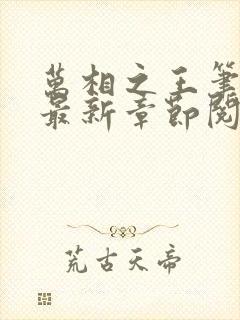 萬相之王筆
最新章節閱
荒古天帝